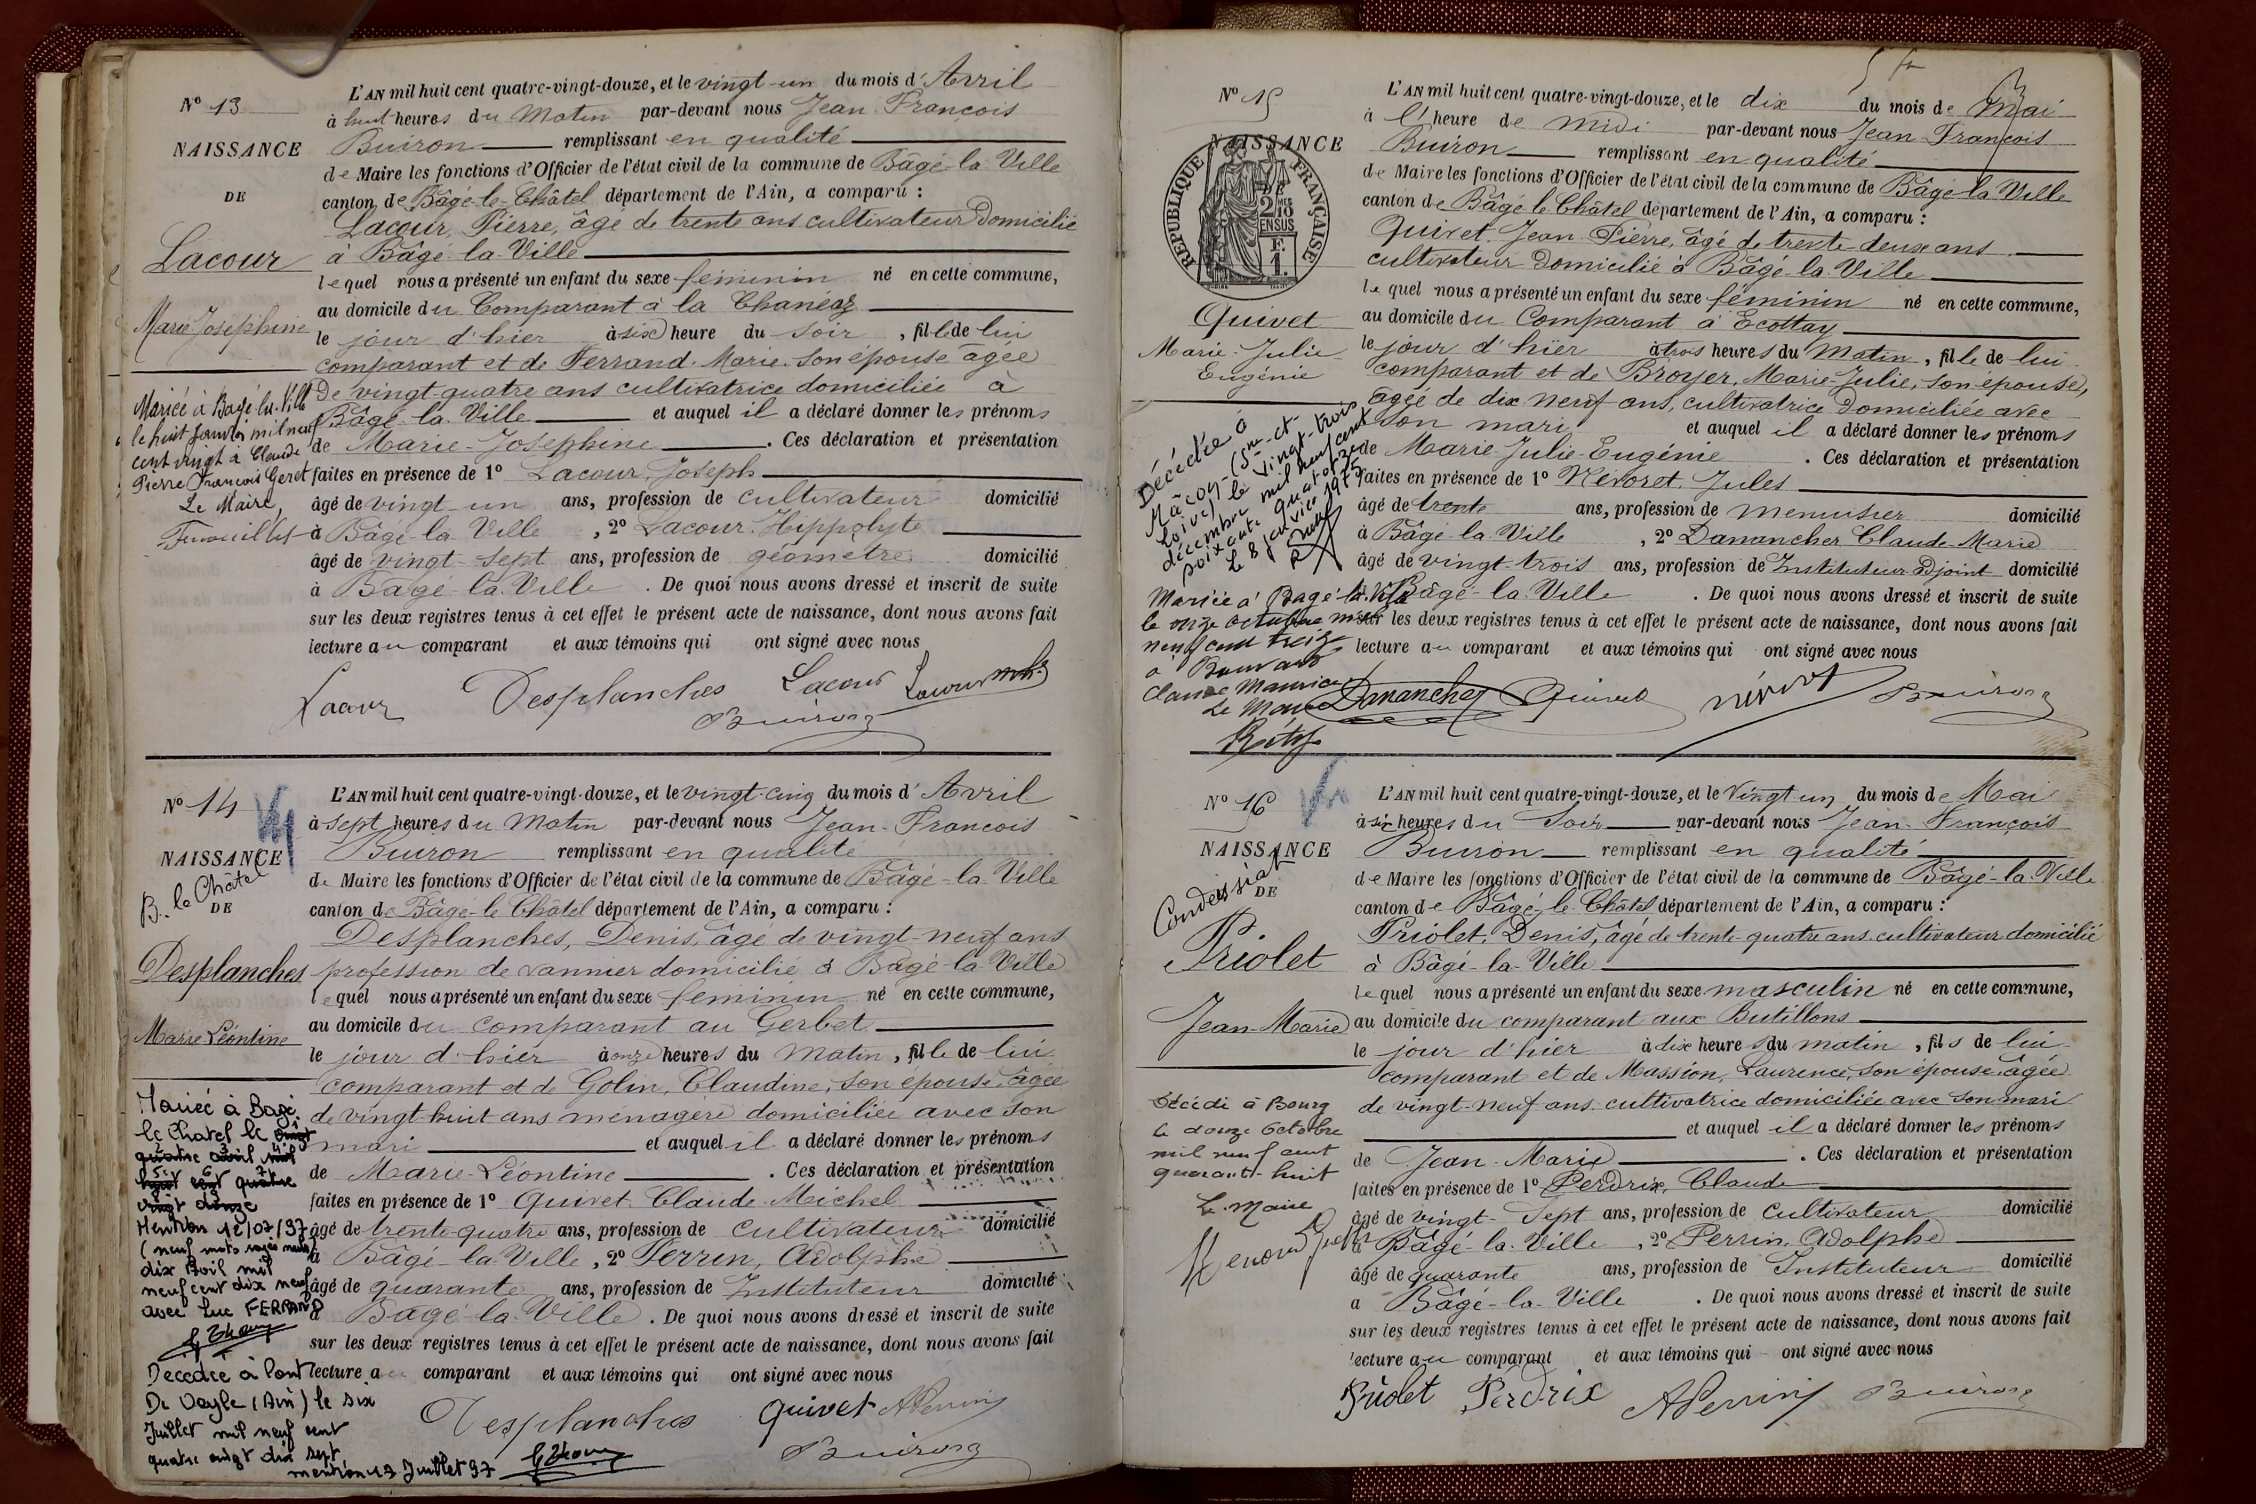 N° 13
NAISSANCE
DE
Lacour
Marie Joséphine
Mariée à Bagé-la-Ville
le huit janvier mil neuf
cent vingt à Claude
Pierre François Geret
Le Maire,
L'AN mil huit cent quatre-vingt-douze, et le vingt-un du mois d'Avril
à huit heures du Matin par-devant nous Jean François
Buiron remplissant en qualité
de Maire les fonctions d'Officier de l'état civil de la commune de Bâgé-la-Ville
canton de Bâgé-le-Châtel département de l'Ain, a comparu :
Lacour, Pierre, âgé de trente ans cultivateur domicilié
à Bâgé-la-Ville
lequel nous a présenté un enfant du sexe féminin né en cette commune,
au domicile du Comparant à la Chanéaz
le jour d'hier à six heure du soir, fille de lui
comparant et de Ferrand Marie son épouse âgée
de vingt-quatre ans cultivatrice domiciliée à
Bâgé-la-Ville et auquel il a déclaré donner les prénoms
de Marie-Joséphine. Ces déclaration et présentation
faites en présence de 1° Lacour, Joseph
âgé de vingt-un ans, profession de cultivateur domicilié
à Bâgé-la-Ville, 2° Lacour Hippolyte
âgé de vingt-sept ans, profession de géomètre domicilié
à Bâgé-la-Ville. De quoi nous avons dressé et inscrit de suite
sur les deux registres tenus à cet effet le présent acte de naissance, dont nous avons fait
lecture au comparant et aux témoins qui ont signé avec nous
Lacour Desplanches Lacour Lacour
Buiron
N° 14
NAISSANCE
B. le Châtel
DE
Desplanches
Marie Léontine
Mariée à Bagé
le Chatel le vingt
quatre avril mil
huit cent quatre
vingt douze
Mention 12/07/97
(neuf mots rayés nuls)
dix Avril mil
neuf cent dix neuf
avec Luc FERRAND
Décédée à Pont
De Veyle (Ain) le six
Juillet mil neuf cent
quatre vingt dix sept
mention 17 Juillet 97
L'AN mil huit cent quatre-vingt-douze, et le vingt-cinq du mois d'Avril
à sept heures du Matin par-devant nous Jean-François
Buiron remplissant en qualité
de Maire les fonctions d'Officier de l'état civil de la commune de Bâgé-la-Ville
canton de Bâgé-le-Châtel département de l'Ain, a comparu :
Desplanches, Denis, âgé de vingt-neuf ans
profession de vannier domicilié à Bâgé-la-Ville
lequel nous a présenté un enfant du sexe féminin né en cette commune,
au domicile du comparant au Gerbet
le jour d'hier à onze heures du Matin, fille de lui
comparant et de Golin, Claudine, son épouse, âgée
de vingt-huit ans ménagère domiciliée avec son
mari et auquel il a déclaré donner les prénoms
de Marie-Léontine. Ces déclaration et présentation
faites en présence de 1° Quivet Claude-Michel
âgé de trente-quatre ans, profession de cultivateur domicilié
à Bâgé-la-Ville, 2° Perrin, Adolphe
âgé de quarante ans, profession de Instituteur domicilié
à Bâgé-la-Ville. De quoi nous avons dressé et inscrit de suite
sur les deux registres tenus à cet effet le présent acte de naissance, dont nous avons fait
lecture au comparant et aux témoins qui ont signé avec nous
Desplanches Quivet APerrin
Buiron
5 fr
N° 15
NAISSANCE
DE
RÉPUBLIQUE FRANÇAISE
2 10
MES
EN SUS
F.
1.
Quivet
Marie-Julie
Eugénie
Décédée à
Mâcon (Sne-et-
Loire) le vingt-trois
décembre mil neuf cent
soixante quatorze
Le 8 janvier 1975
Mariée à Bagé-la-Ville
le onze octobre mil
neuf cent treize
à Bouvard
Claude Maurice
Le Maire
L'AN mil huit cent quatre-vingt-douze, et le dix du mois de Mai
à l'heure de midi par-devant nous Jean François
Buiron remplissant en qualité
de Maire les fonctions d'Officier de l'état civil de la commune de Bâgé-la-Ville
canton de Bâgé le Châtel département de l'Ain, a comparu :
Quivet Jean-Pierre, âgé de trente-deux ans
cultivateur domicilié à Bâgé-la-Ville
lequel nous a présenté un enfant du sexe féminin né en cette commune,
au domicile du Comparant à Ecottay
le jour d'hier à trois heures du Matin, fille de lui
comparant et de Broyer, Marie-Julie, son épouse,
âgée de dix neuf ans, cultivatrice domiciliée avec
son mari et auquel il a déclaré donner les prénoms
de Marie-Julie-Eugénie. Ces déclaration et présentation
faites en présence de 1° Névoret, Jules
âgé de trente ans, profession de menuisier domicilié
à Bâgé-la-Ville, 2° Danancher Claude-Marie
âgé de vingt-trois ans, profession de Instituteur adjoint domicilié
à Bâgé-la-Ville. De quoi nous avons dressé et inscrit de suite
sur les deux registres tenus à cet effet le présent acte de naissance, dont nous avons fait
lecture au comparant et aux témoins qui ont signé avec nous
Danancher Quivet Névoret Buiron
N° 16
NAISSANCE
Condeissiat
DE
Priolet
Jean-Marie
Décédé à Bourg
le douze Octobre
mil neuf cent
quarante-huit
Le Maire
L'AN mil huit cent quatre-vingt-douze, et le Vingt-un du mois de Mai
à six heures du Soir par-devant nous Jean-François
Buiron remplissant en qualité
de Maire les fonctions d'Officier de l'état civil de la commune de Bâgé-la-Ville
canton de Bâgé-le-Châtel département de l'Ain, a comparu :
Priolet, Denis, âgé de trente-quatre ans cultivateur domicilié
à Bâgé-la-Ville
lequel nous a présenté un enfant du sexe masculin né en cette commune,
au domicile du comparant aux Butillons
le jour d'hier à dix heures du matin, fils de lui
comparant et de Massion, Laurence, son épouse, âgée
de vingt-neuf ans cultivatrice domiciliée avec son mari
et auquel il a déclaré donner les prénoms
de Jean-Marie. Ces déclaration et présentation
faites en présence de 1° Perdrix, Claude
âgé de vingt-sept ans, profession de cultivateur domicilié
à Bâgé-la-Ville, 2° Perrin, Adolphe
âgé de quarante ans, profession de Instituteur domicilié
à Bâgé-la-Ville. De quoi nous avons dressé et inscrit de suite
sur les deux registres tenus à cet effet le présent acte de naissance, dont nous avons fait
lecture au comparant et aux témoins qui ont signé avec nous
Priolet Perdrix APerrin Buiron